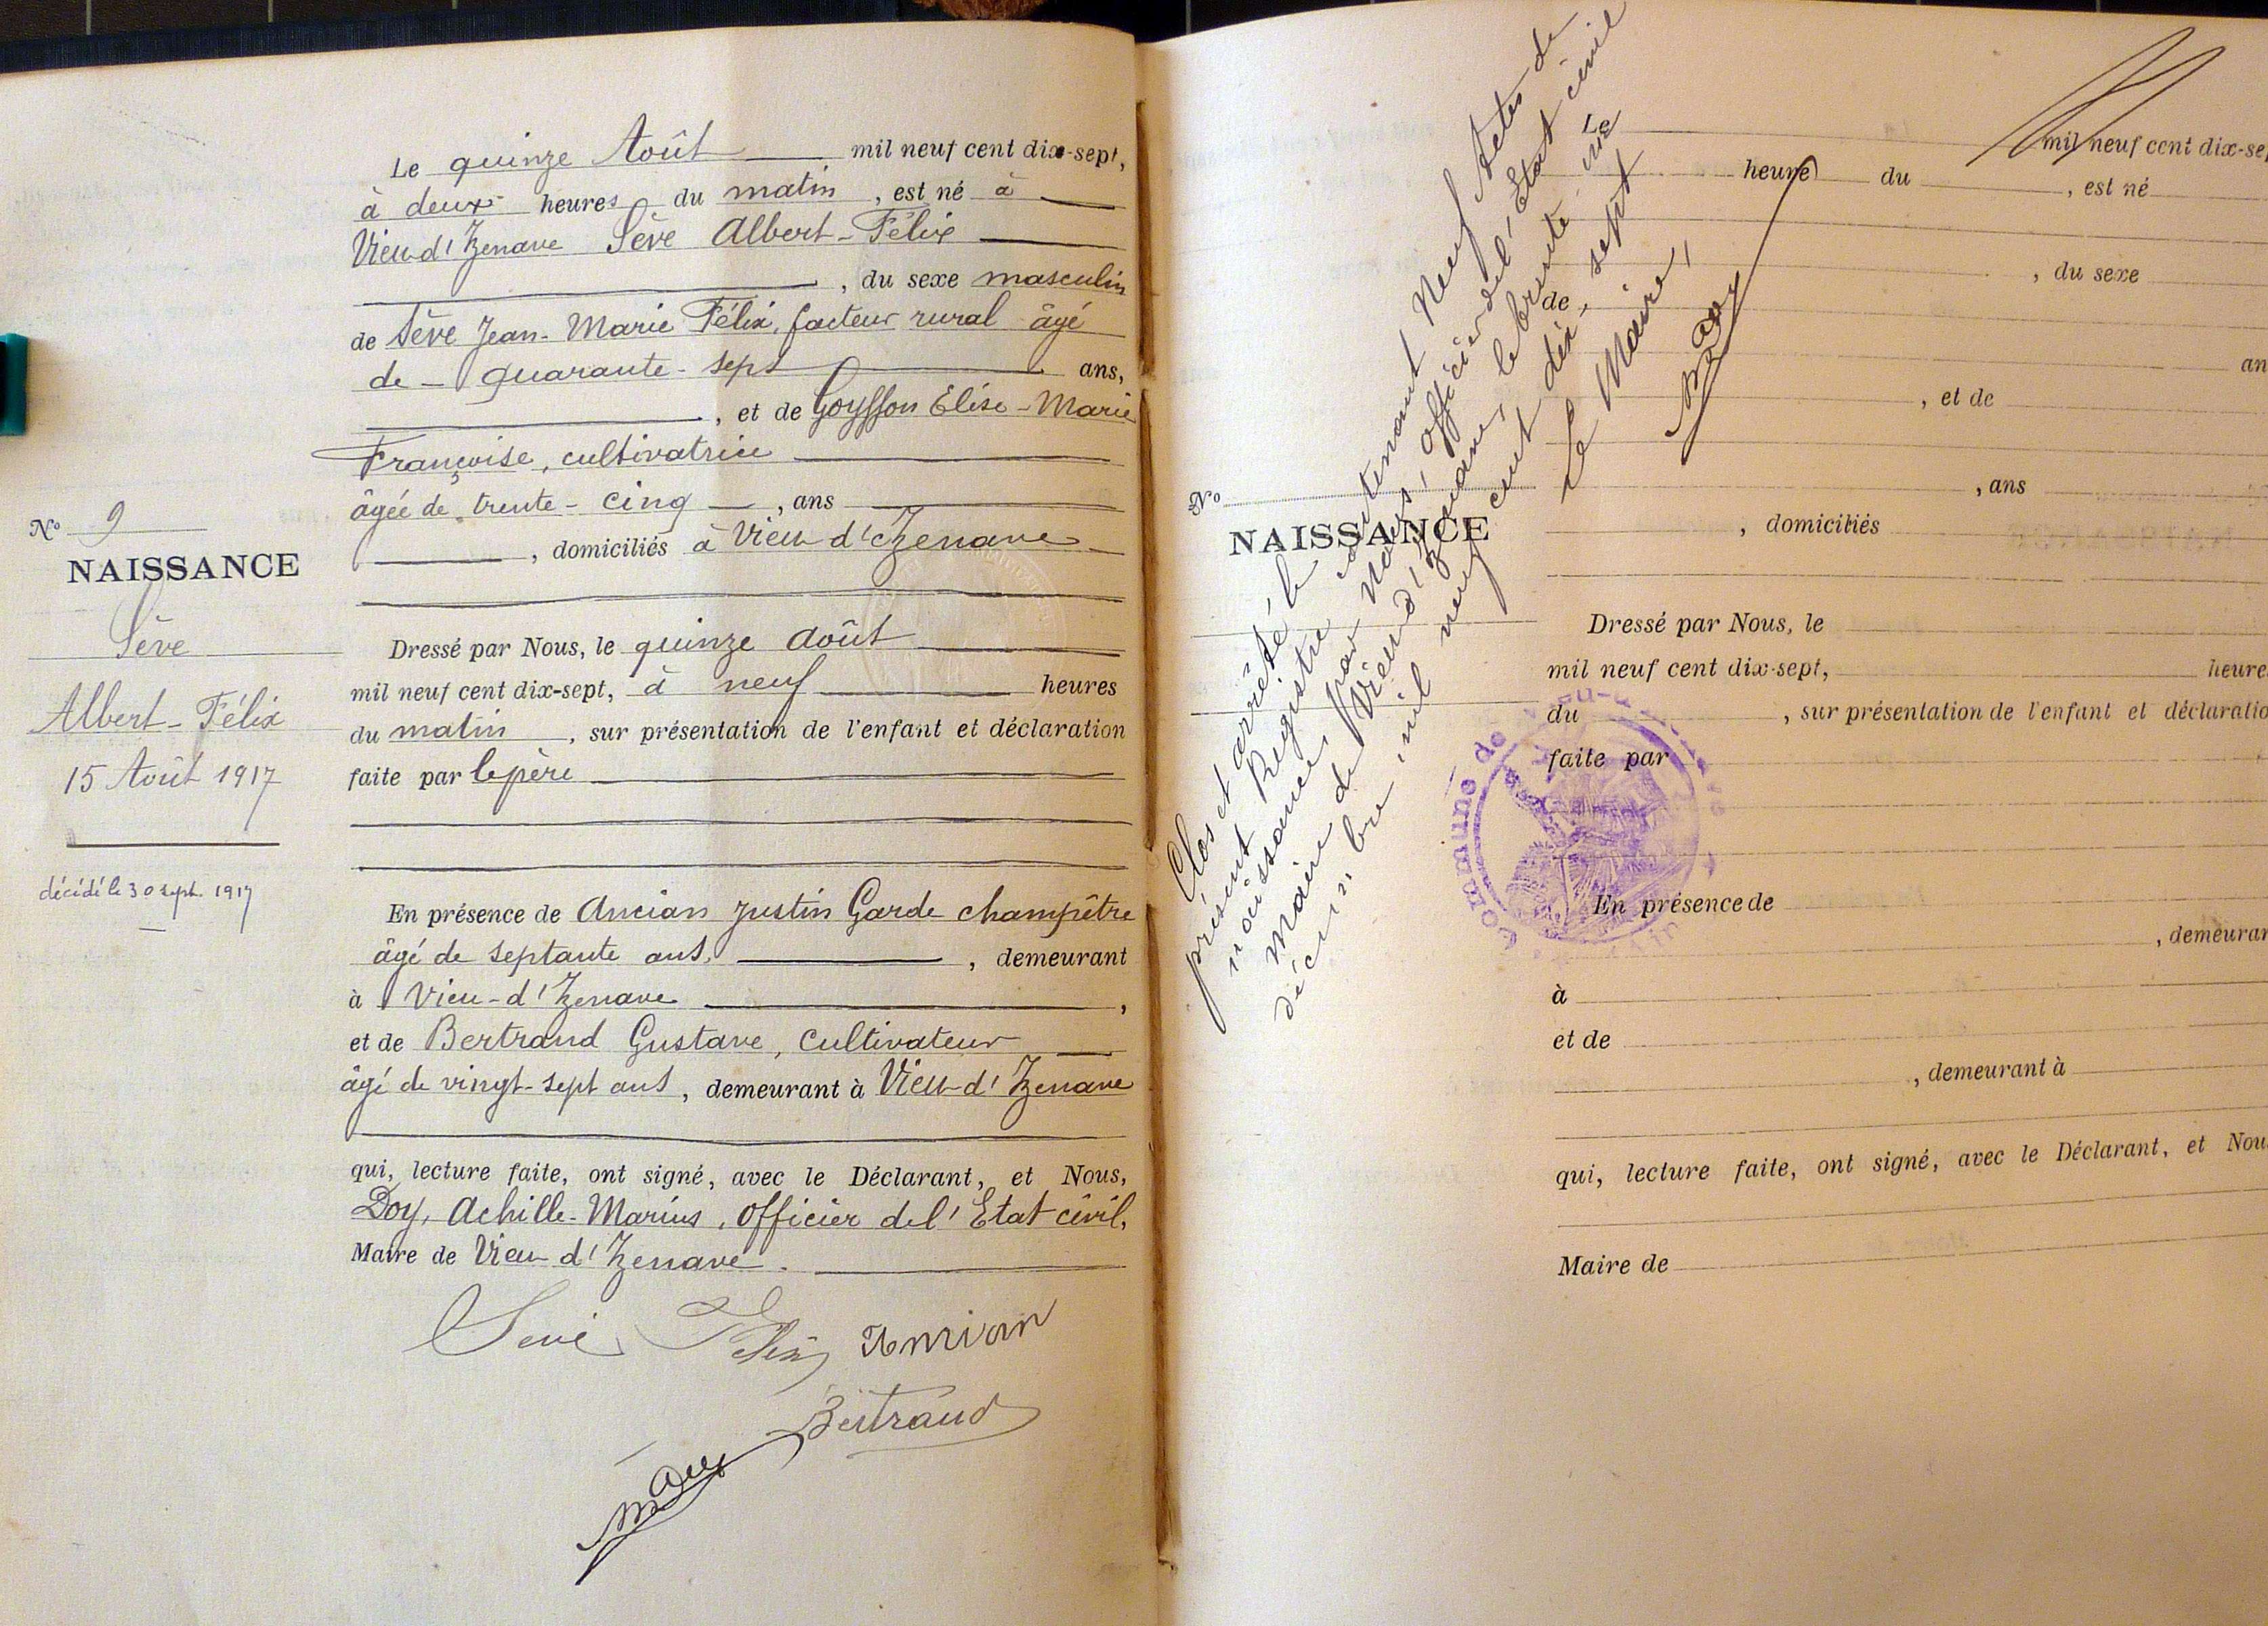 Le quinze Août mil neuf cent dix-sept,
à deux heures du matin, est né à
Vieu d'Izenave Sève Albert-Félix
, du sexe masculin
de Sève Jean-Marie Félix, facteur rural âgé
de quarante-sept ans,
, et de Goyffon Elise-Marie
Françoise, cultivatrice
âgée de trente-cinq, ans
, domiciliés à Vieu d'Izenave
Dressé par Nous, le quinze Août
mil neuf cent dix-sept, à neuf heures
du matin, sur présentation de l'enfant et déclaration
faite par le père
En présence de Ancian Justin Garde champêtre
âgé de septante ans, demeurant
à Vieu-d'Izenave,
et de Bertrand Gustave, cultivateur
âgé de vingt-sept ans, demeurant à Vieu d'Izenave
qui, lecture faite, ont signé, avec le Déclarant, et Nous,
Doy, Achille-Marius, Officier de l'Etat civil,
Maire de Vieu d'Izenave.
Sève Félix Ancian
Bertrand
N° 9
NAISSANCE
Sève
Albert-Félix
15 Août 1917
décédé le 30 sept. 1917
Clos et arrêté le
présent Registre contenant Neuf Actes de
naissances, par Nous, Officier de l'Etat civil
Maire de Vieu d'Izenave, le trente-un
décembre mil neuf cent dix-sept
Le Maire,
N°
NAISSANCE
Le mil neuf cent dix-se
heure du , est né
, du sexe
de
an
, et de
, ans
, domiciliés
Dressé par Nous, le
mil neuf cent dix-sept, heure
du , sur présentation de l'enfant et déclaratio
faite par
Commune de
Ain
En présence de
, demeuran
à
et de
, demeurant à
qui, lecture faite, ont signé, avec le Déclarant, et Nou
Maire de